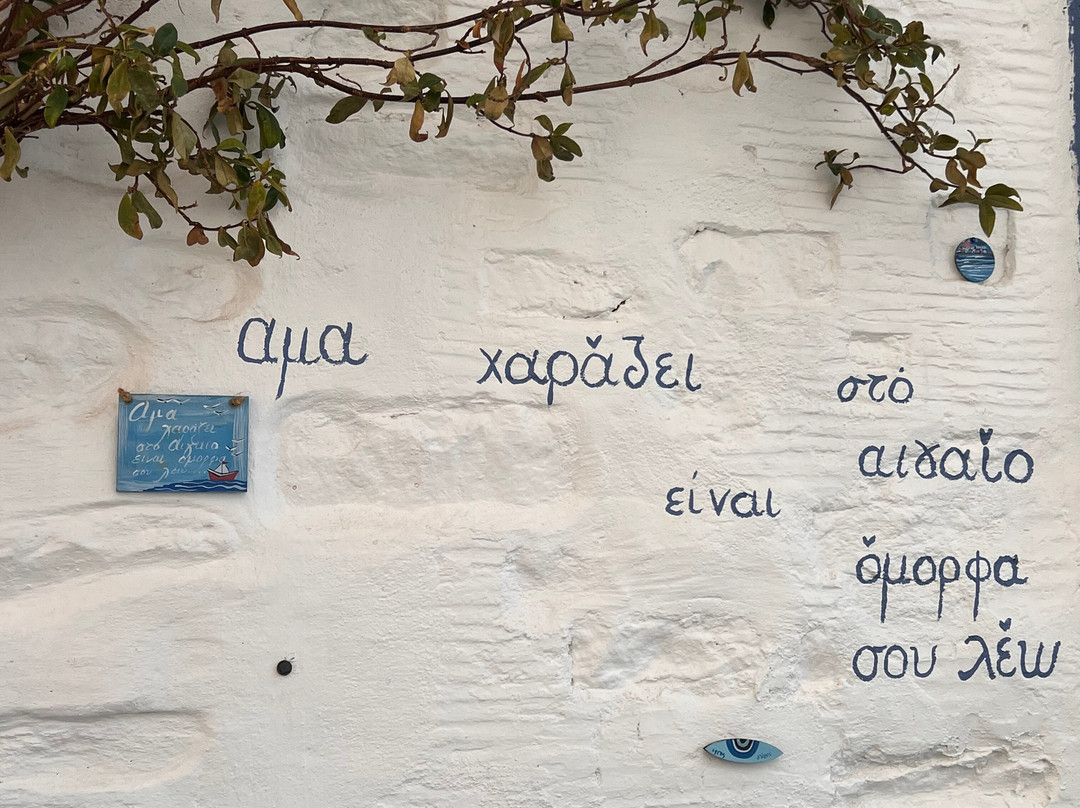 αμα χαράζει στό
αιγαίο
είναι
όμορφα
σου λέω
Αμα
χαράζει
στο Αιγαίο
είναι όμορφα
σου λέω....